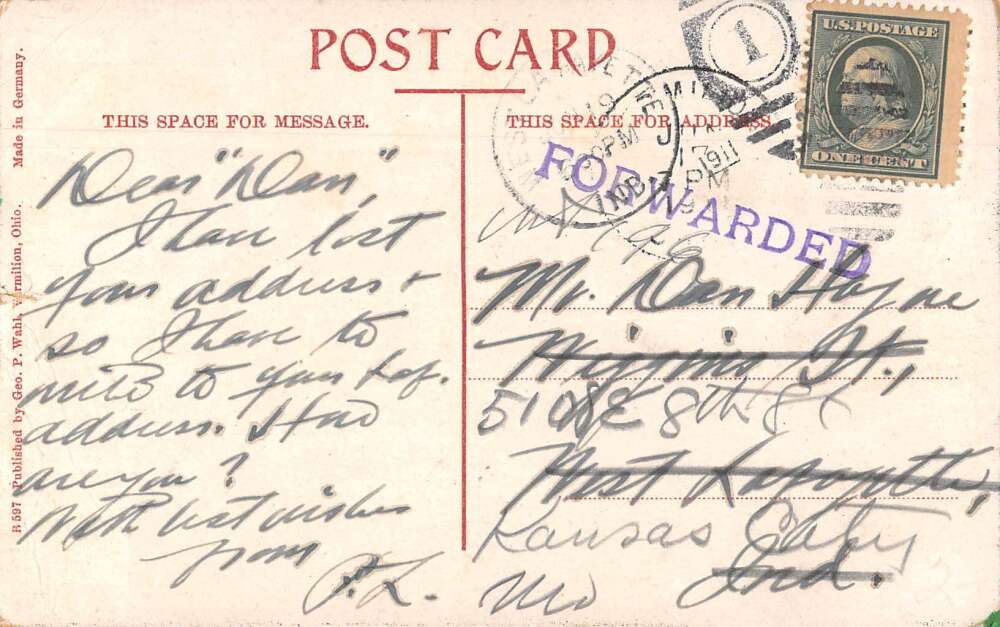 POST CARD
THIS SPACE FOR MESSAGE.
THIS SPACE FOR ADDRESS.
U.S. POSTAGE
ONE CENT
1
1911
PM
FORWARDED
Dear "Dan",
I have lost
your address +
so I have to
write to your Laf.
address. How
are you?
With best wishes
from
F. L.
Mr. Dan Hayne
Wiggins St.,
510 E 8th St
West Lafayette,
Kansas City
Ind.
Mo
R 597 Published by Geo. P. Wahl, Vermilion, Ohio. Made in Germany.